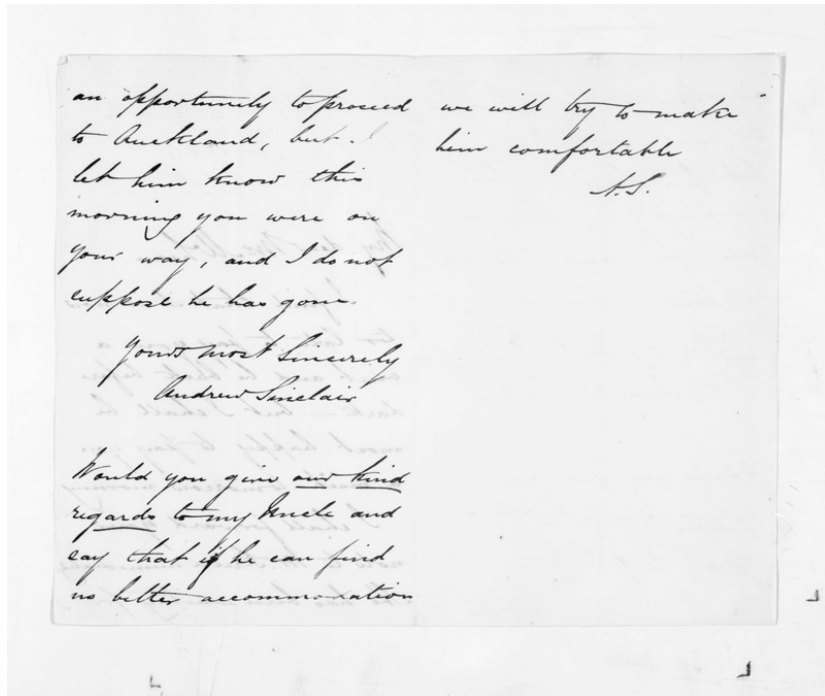 an opportunity to proceed
to Auckland, but I
let him know this
morning you were on
your way, and I do not
suppose he has gone
Yours most Sincerely
Andrew Sinclair
Would you give our kind
regards to my Uncle and
say that if he can find
no better accommodation
we will try to make
him comfortable
A.S.